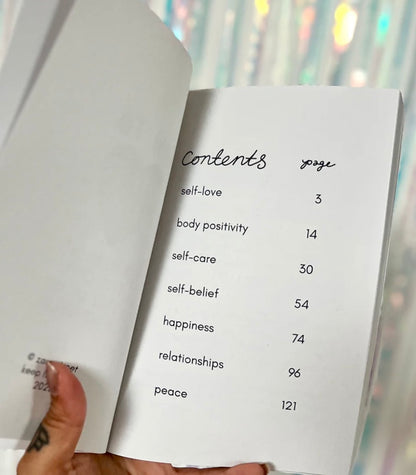 contents page
self-love 3
body positivity 14
self-care 30
self-belief 54
happiness 74
relationships 96
peace 121
©
keep